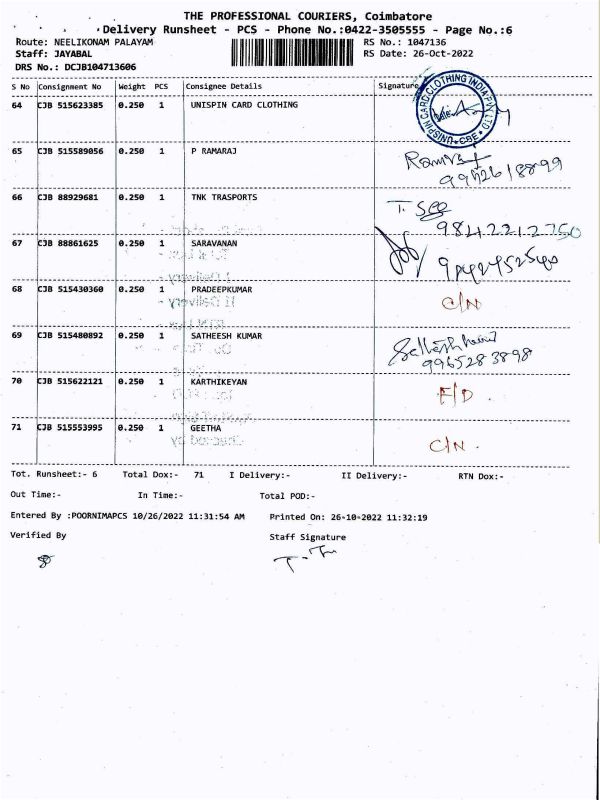 THE PROFESSIONAL COURIERS, Coimbatore
Delivery Runsheet - PCS - Phone No.:0422-3505555 - Page No.:6
Route: NEELIKONAM PALAYAM RS No.: 1047136
Staff: JAYABAL RS Date: 26-Oct-2022
DRS No.: DCJB104713606
S No Consignment No Weight PCS Consignee Details Signature
64 CJB 515623385 0.250 1 UNISPIN CARD CLOTHING
UNISPIN CARD CLOTHING INDIA PVT LTD CBE
65 CJB 515589056 0.250 1 P RAMARAJ
66 CJB 88929681 0.250 1 TNK TRASPORTS T.
9842212750
67 CJB 88861625 0.250 1 SARAVANAN
68 CJB 515430360 0.250 1 PRADEEPKUMAR C/N
69 CJB 515480892 0.250 1 SATHEESH KUMAR
9965283898
70 CJB 515622121 0.250 1 KARTHIKEYAN F/D.
71 CJB 515553995 0.250 1 GEETHA C/N.
Tot. Runsheet:- 6 Total Dox:- 71 I Delivery:- II Delivery:- RTN Dox:-
Out Time:- In Time:- Total POD:-
Entered By :POORNIMAPCS 10/26/2022 11:31:54 AM Printed On: 26-10-2022 11:32:19
Verified By Staff Signature